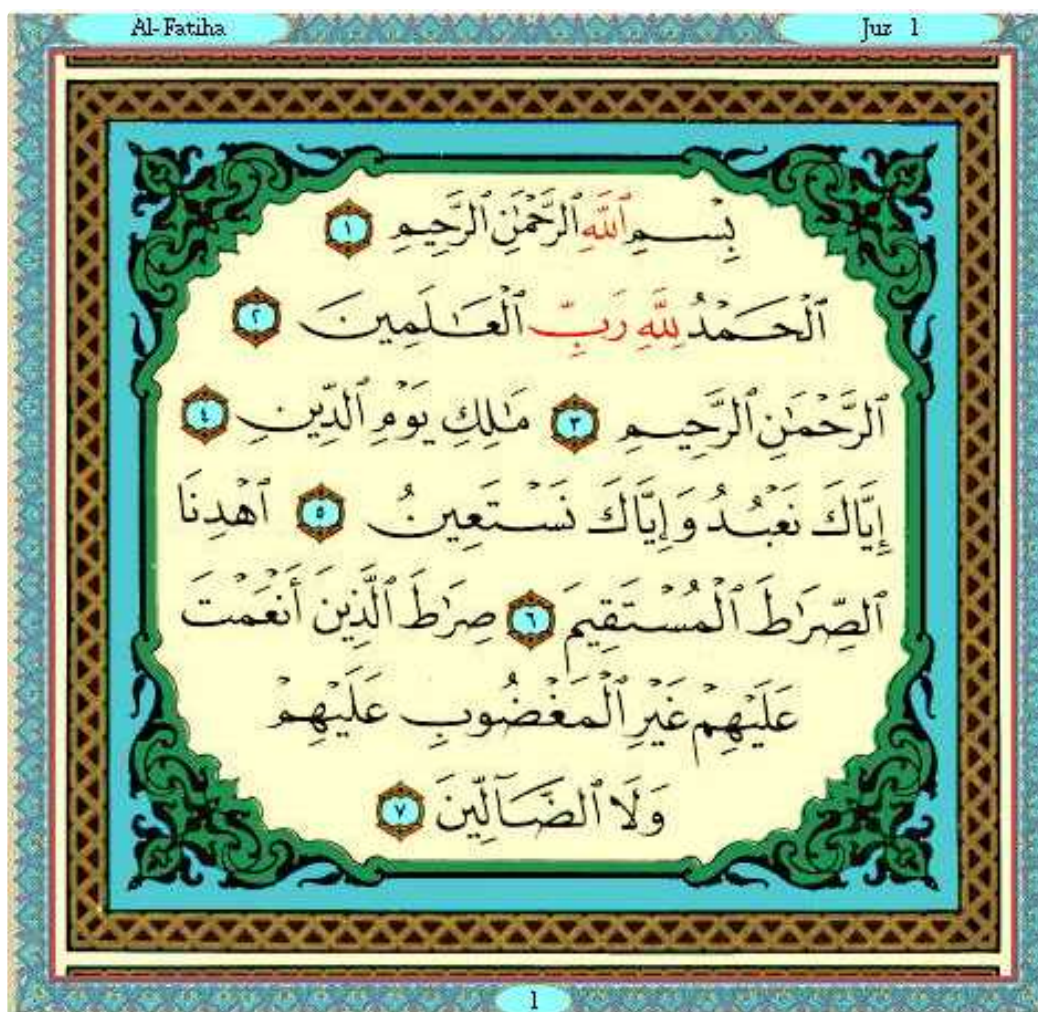 Al-Fatiha
Juz 1
بِسْمِ ٱللَّهِ ٱلرَّحْمَٰنِ ٱلرَّحِيمِ ١
ٱلْحَمْدُ لِلَّهِ رَبِّ ٱلْعَٰلَمِينَ ٢
ٱلرَّحْمَٰنِ ٱلرَّحِيمِ ٣ مَٰلِكِ يَوْمِ ٱلدِّينِ ٤
إِيَّاكَ نَعْبُدُ وَإِيَّاكَ نَسْتَعِينُ ٥ ٱهْدِنَا
ٱلصِّرَٰطَ ٱلْمُسْتَقِيمَ ٦ صِرَٰطَ ٱلَّذِينَ أَنْعَمْتَ
عَلَيْهِمْ غَيْرِ ٱلْمَغْضُوبِ عَلَيْهِمْ
وَلَا ٱلضَّآلِّينَ ٧
1